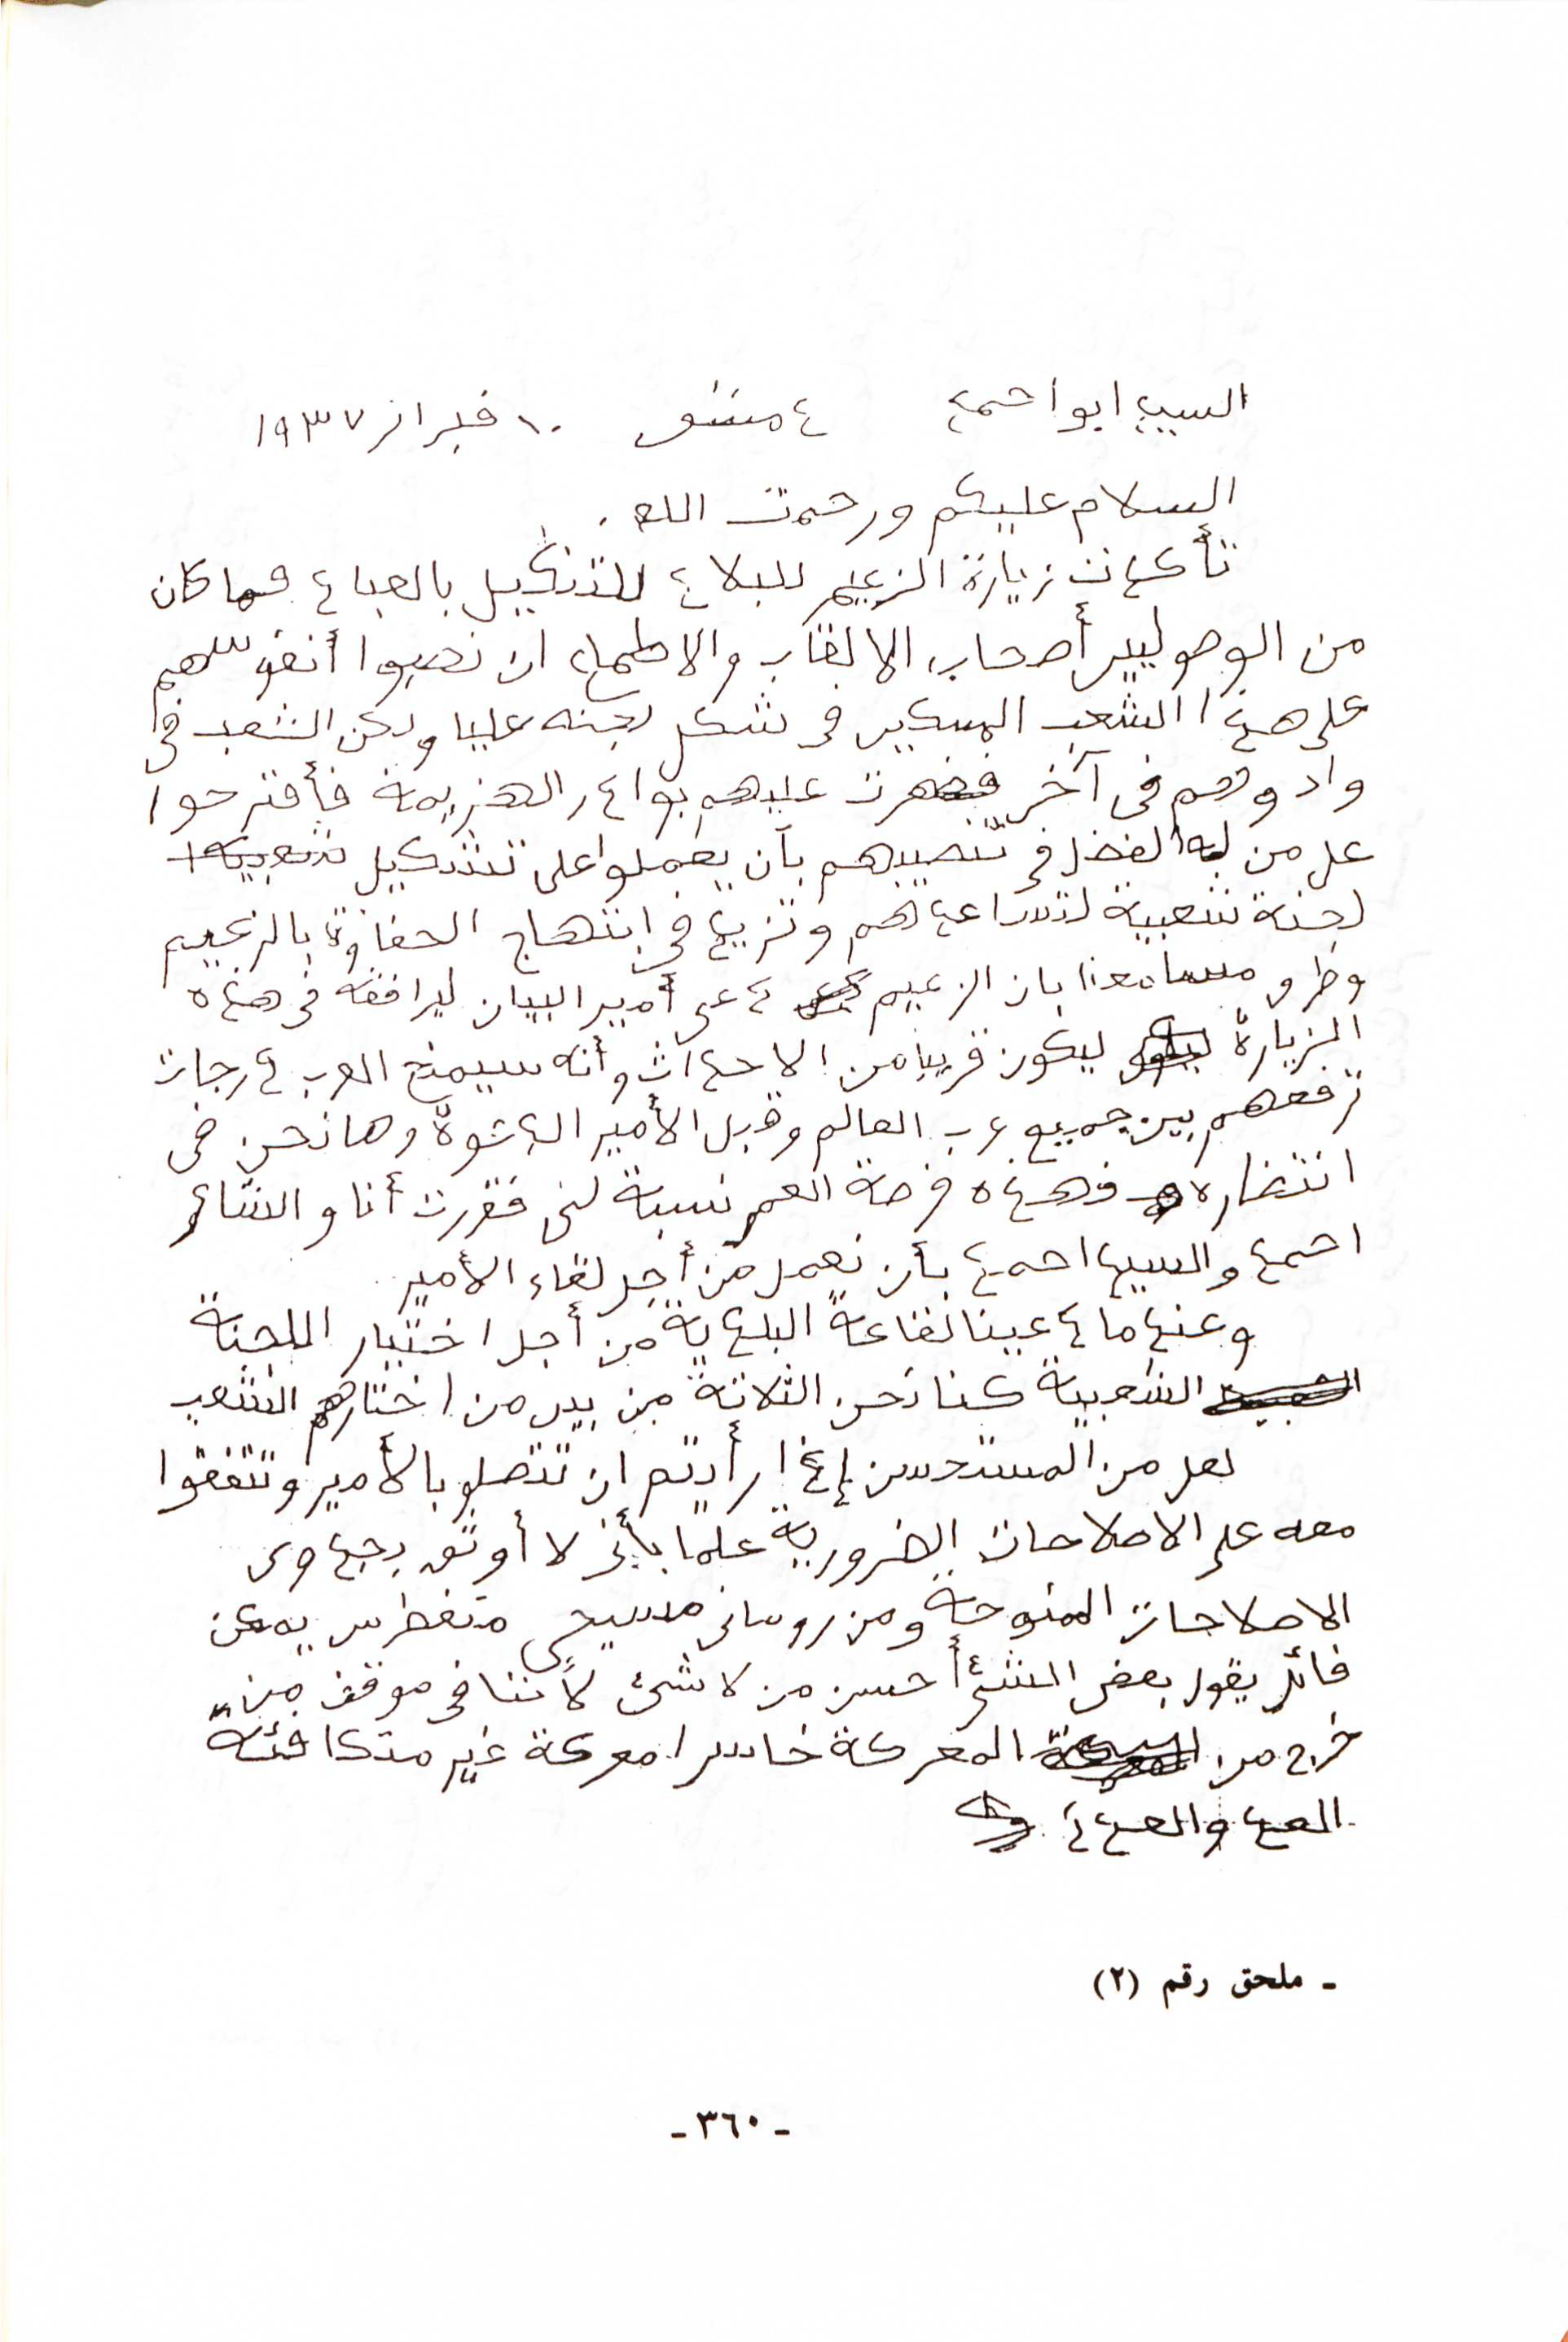 السيد ابو احمد دمشق ١٠ فبراير ١٩٣٧
السلام عليكم ورحمت الله .
تأكدت زيارة الزعيم للبلاد للتنكيل بالعباد فما كان
من الوصوليين أصحاب الالقاب والاطماع ان نصبوا أنفوسهم
على هذا الشعب المسكين فى شكل لجنه عليا ولكن الشعب فى
واد وهم فى آخر فضهرت عليهم بوادر الهزيمة فأقترحوا
على من له الفضل فى تنصيبهم بآن يعملوا على تشكيل
لجنة شعبية لتساعدهم وتزيد فى ابتهاج الحفاوة بالزعيم
وطرو مسامعنا بان الزعيم دعى أمير البيان ليرافقه فى هذه
الزيارة ليكون قريبا من الاحداث وأنه سيمنح العرب درجات
ترفعهم بين جميع عرب العالم وقبل الأمير الدعوة وها نحن فى
انتضاره فهذه فرصة العمر نسبة لنى فقررت أنا والشاعر
احمد والسيد احمد بأن نعمل من أجل لقاء الأمير
وعندما دعينا لقاعة البلدية من أجل اختيار اللجنة
الشعبية كنا نحن الثلاثة من بين من اختارهم الشعب
لعل من المستحسن إذا رأيتم ان تتصلو بالأمير وتتفقوا
معه على الاصلاحات الضرورية علما بأنى لا أوثق بجدوى
الاصلاحات الممنوحة ومن رومانى مسيحى متغطرس يمكن
قائل يقول بعض الشئ أحسن من لا شئ لأننا فى موقف من
خرج من المعركة خاسرا معركة غير متكافئة
العدد والعدة
- ملحق رقم (٢)
- ٣٦٠ -